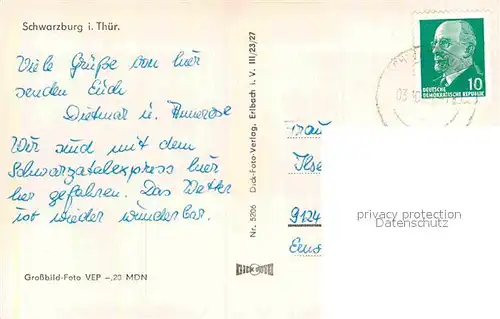 Schwarzburg i. Thür.
Viele Grüße von hier
senden Euch
Dietmar u. Annerose
Wir sind mit dem
Schwarzatalexpress hier
her gefahren. Das Wetter
ist wieder wunderbar.
Großbild-Foto VEP -,20 MDN
Nr. 5206 Dick-Foto-Verlag, Erlbach i. V. III/23/27
DICK FOTO
10
DEUTSCHE
DEMOKRATISCHE REPUBLIK
Frau
Ilse
9124
privacy protection
Datenschutz